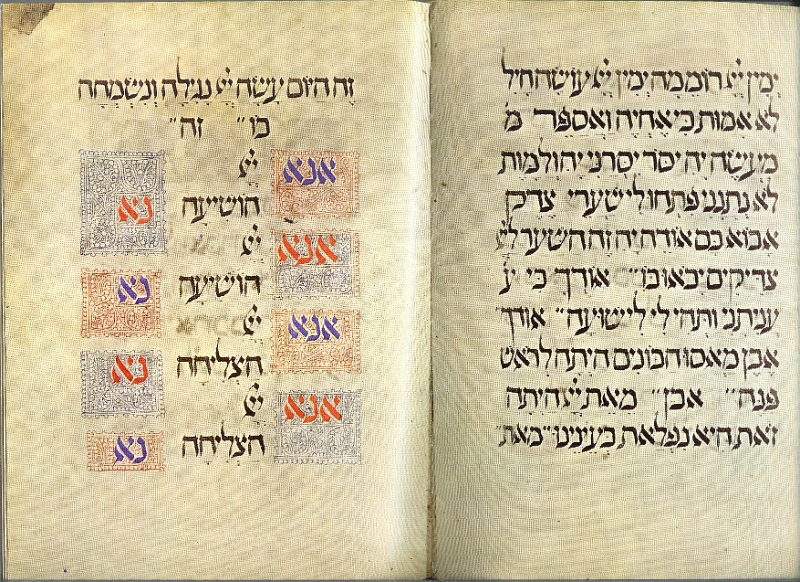 ימין ייי רוממה ימין ייי עושה חיל
לא אמות כי אחיה ואספר מ
מעשה יה יסר יסרני יה ולמות
לא נתנני פתחו לי שערי צדק
אבוא בם אודה יה זה השער ליי
צדיקים יבאו בו״ אודך כי ע
עניתני ותהי לי לישועה״ אודך
אבן מאסו הבונים היתה לראש
פנה״ אבן״ מאת ייי היתה
זאת היא נפלאת בעינינו״ מאת
זה היום עשה ייי נגילה ונשמחה
בו״ זה״
אנא ייי
הושיעה נא
אנא ייי
הושיעה נא
אנא ייי
הצליחה נא
אנא ייי
הצליחה נא